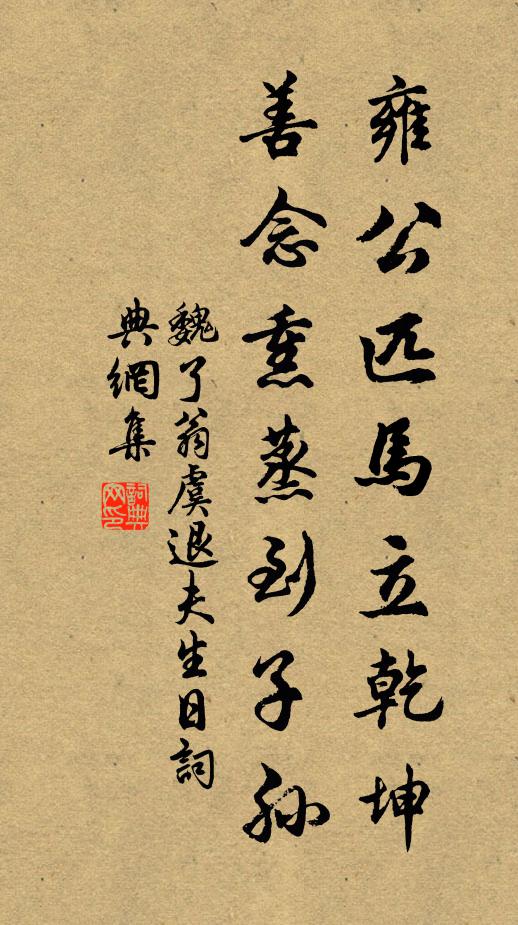 雍公匹馬立乾坤
善念熏蒸到子孫
魏了翁虞退夫生日詞
典網集
詞典網印